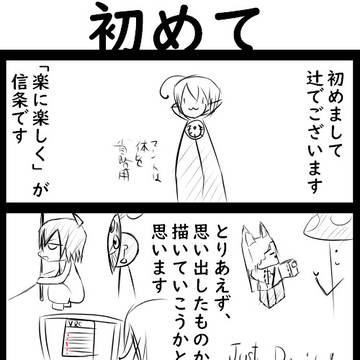 初めて
初めまして
辻でございます
「楽に楽しく」が
信条です
マントは
体を
省略用
とりあえず、
思い出したものか
描いていこうかと
思います
VRC
Just